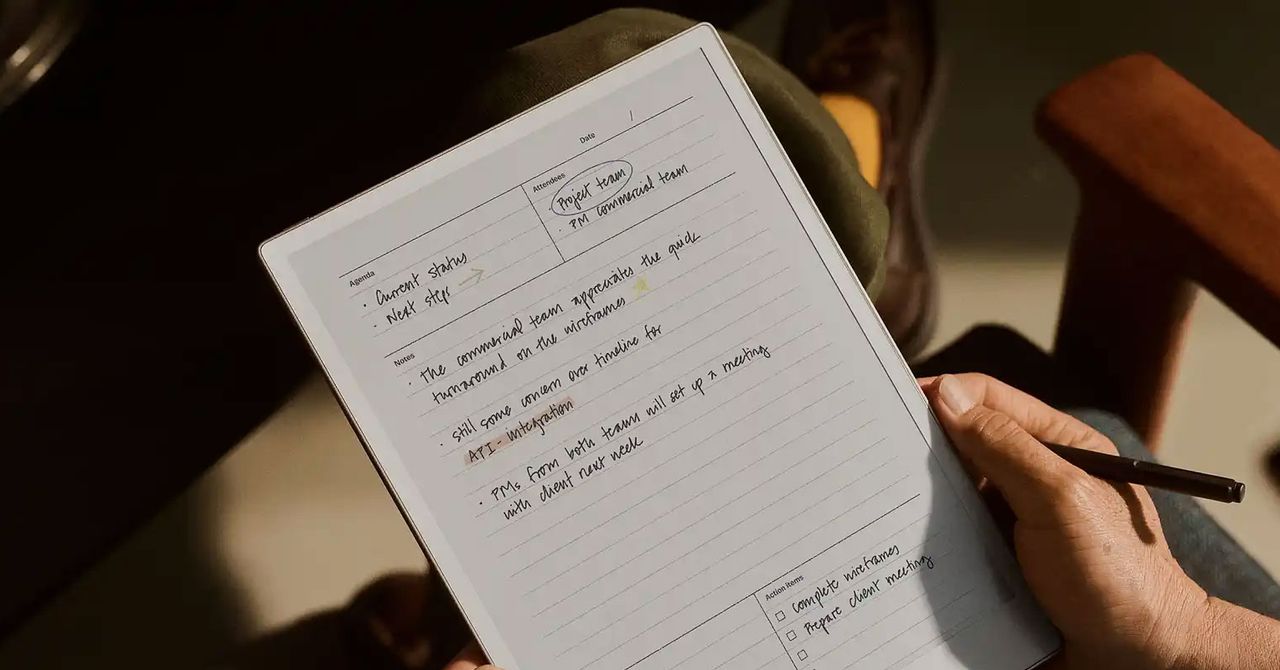 Date /
Attendees
· Project team
· PM commercial team
Agenda
· Current status
· Next steps →
Notes
· the commercial team appreciates the quick
turnaround on the wireframes
· still some concern over timeline for
API-integration
· PMs from both teams will set up a meeting
with client next week
Action items
Complete wireframes
Prepare client meeting